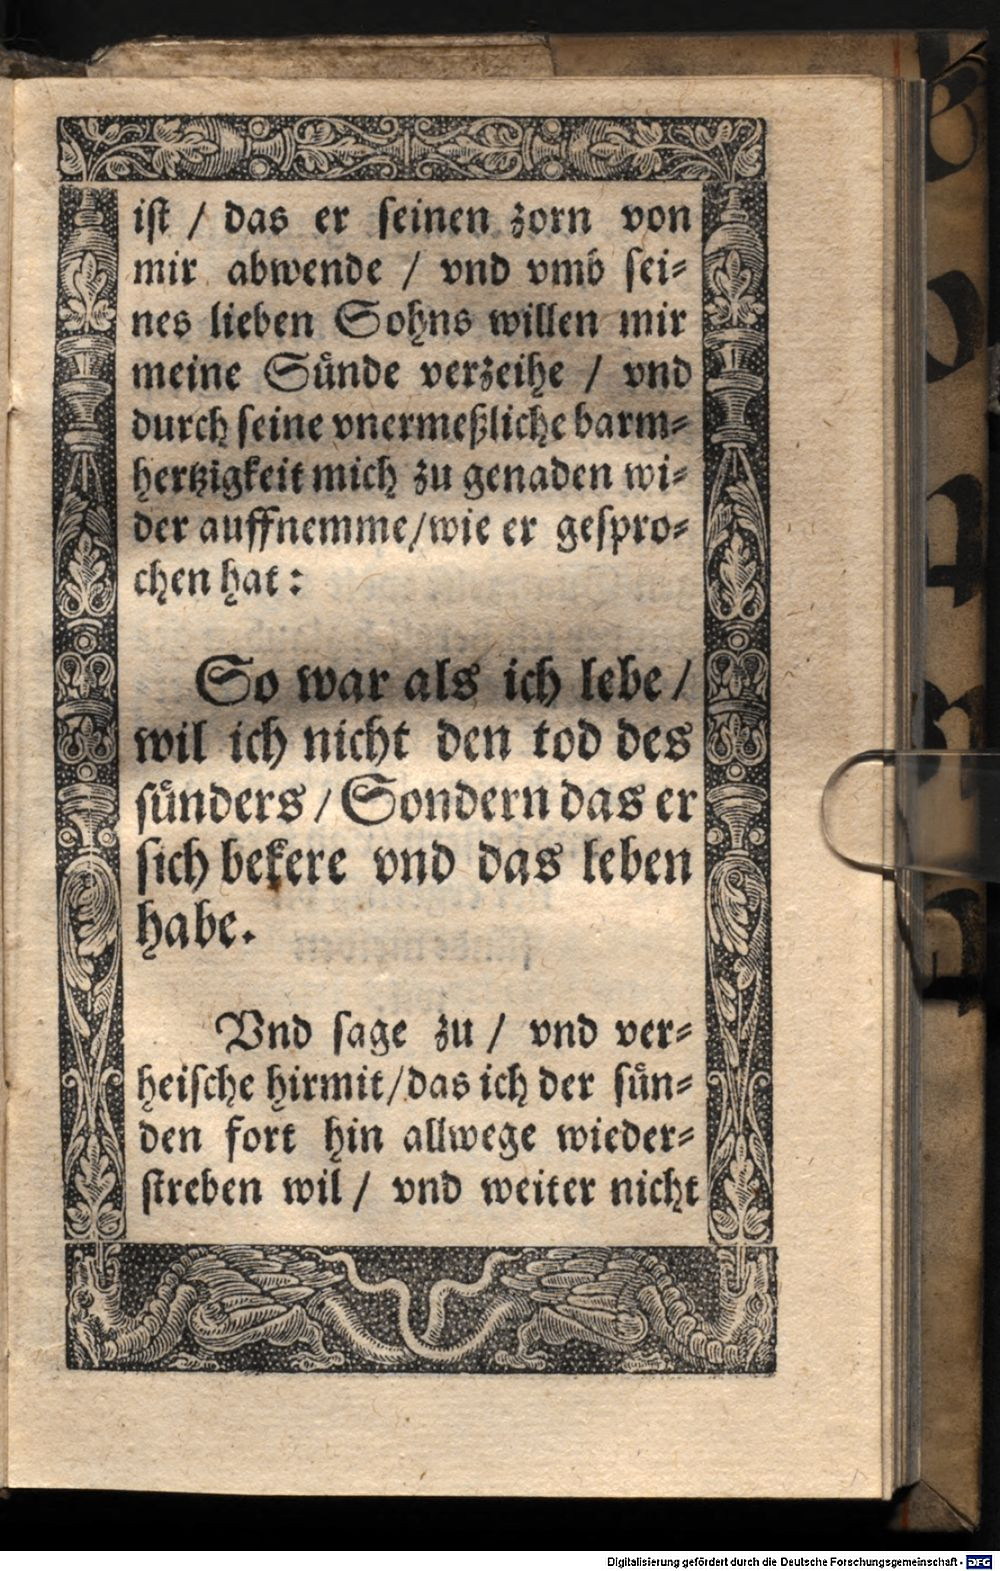 ist / das er seinen zorn von
mir abwende / vnd vmb sei-
nes lieben Sohns willen mir
meine Sünde verzeihe / vnd
durch seine vnermeßliche barm-
hertzigkeit mich zu genaden wi-
der auffnemme/wie er gespro-
chen hat:
So war als ich lebe /
wil ich nicht den tod des
sünders / Sondern das er
sich bekere vnd das leben
habe.
Vnd sage zu / vnd ver-
heische hirmit/das ich der sün-
den fort hin allwege wieder-
streben wil / vnd weiter nicht
Digitalisierung gefördert durch die Deutsche Forschungsgemeinschaft - DFG